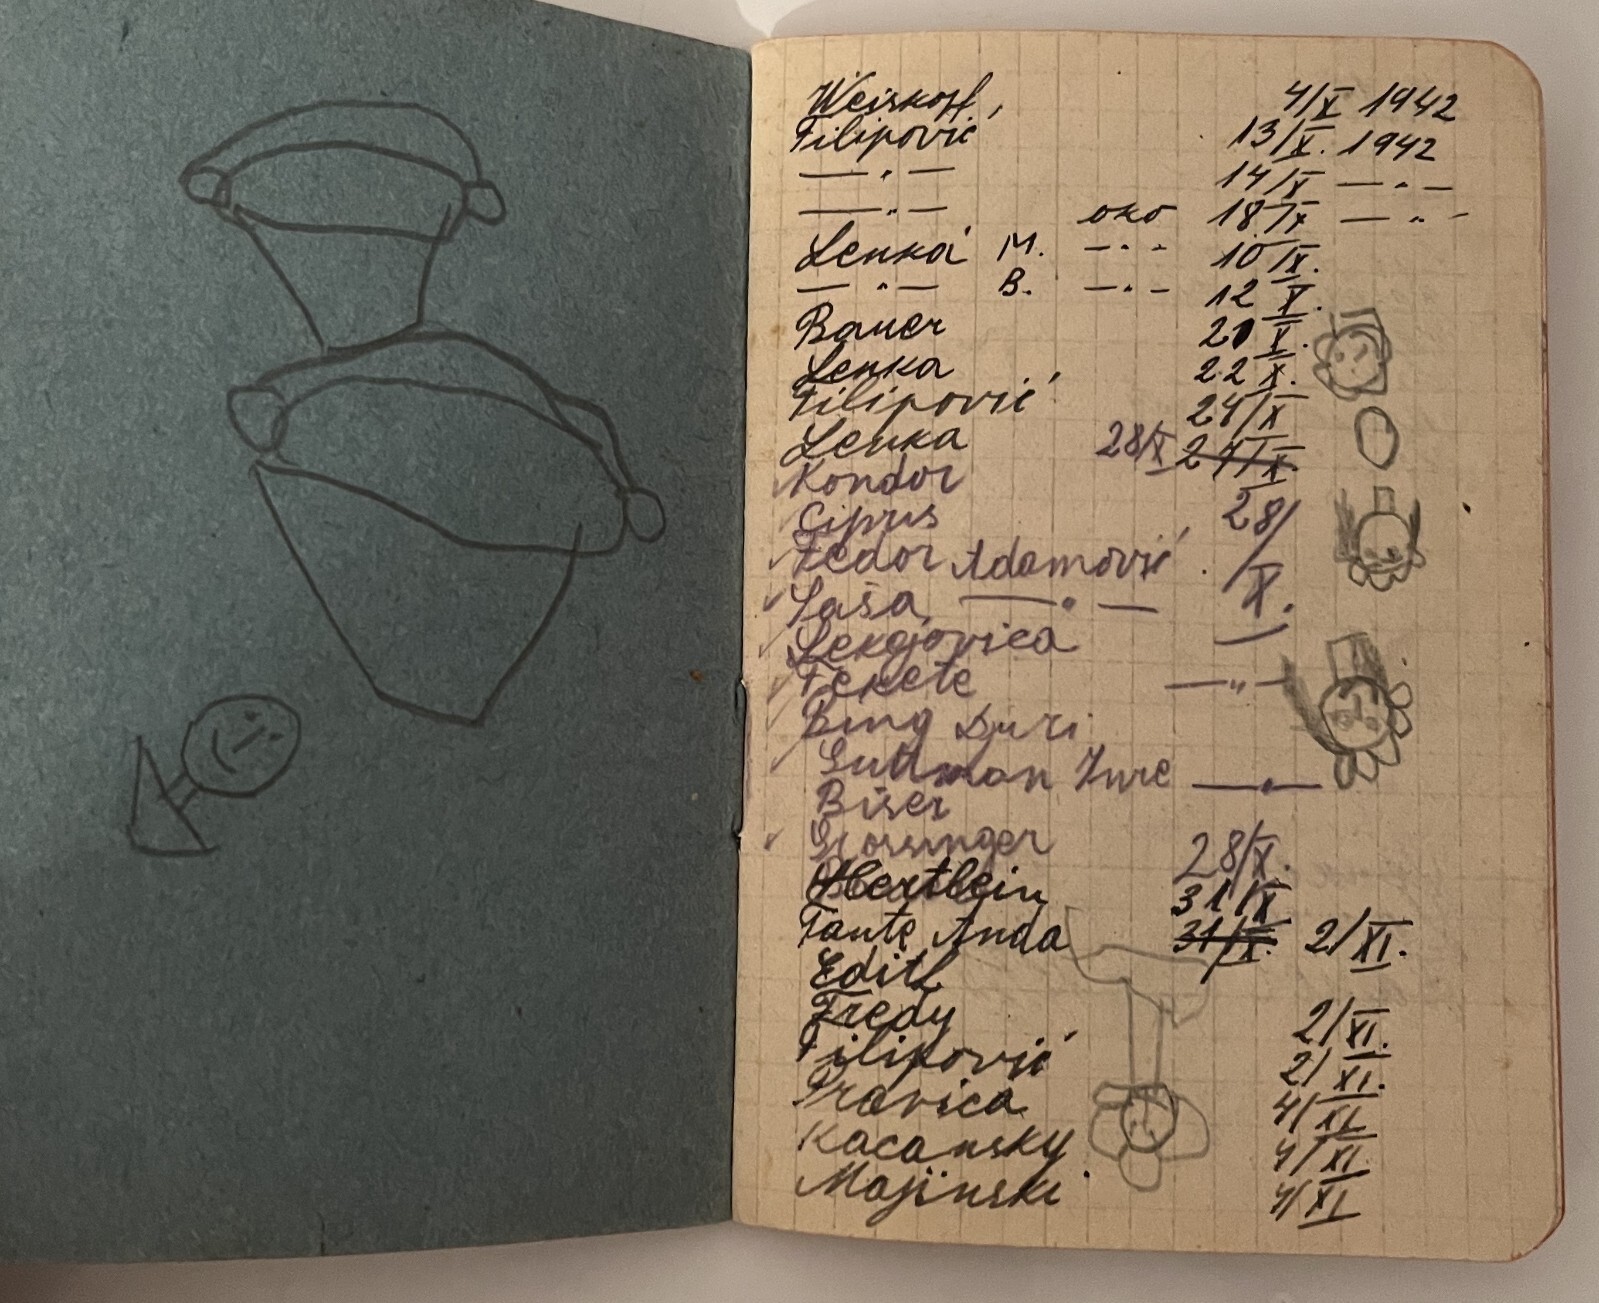 Weiskopf, 4/X 1942
Filipović 13/X. 1942
— " — 14/X — " —
— " — oko 18/X — " —
Lenka M. — " — 10/X.
— " — B. — " — 12 X.
Bauer 21 X.
Lenka 22 X.
Filipović 24/X
Lenka 28/X 27/X.
Kondor
Ciprus 28/
Fedor Adamović X.
Saša — " —
Fekete — " —
Bing Djuri
Gutman Zure — " —
Biser
28/X.
Hertlein 31/X
Tante Anda 31/X. 2/XI.
Edith
Fredy 2/XI.
Filipović 2/XI.
4/XI
Kacansky 4/XI
Majinski 4/XI